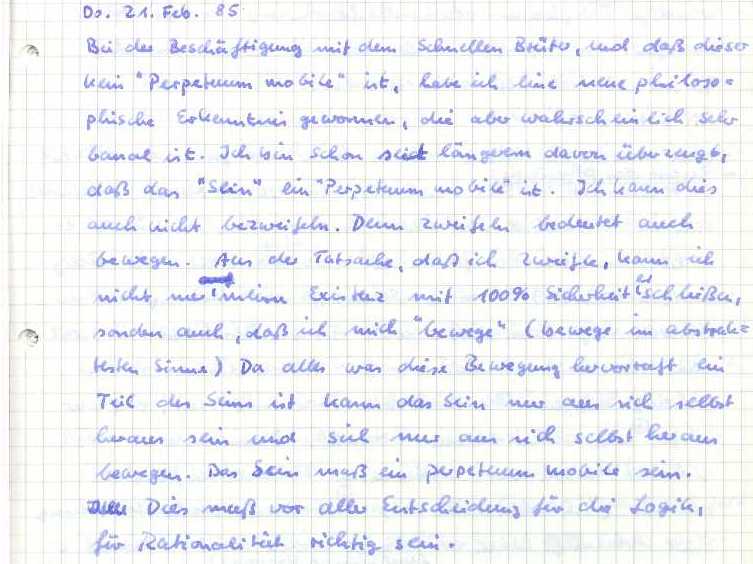 Do. 21. Feb. 85
Bei der Beschäftigung mit dem Schnellen Brüter, und daß dieser
kein "Perpetuum mobile" ist, habe ich eine neue philoso=
phische Erkenntnis gewonnen, die aber wahrscheinlich sehr
banal ist. Ich bin schon seit längerem davon überzeugt,
daß das "Sein" ein "Perpetuum mobile" ist. Ich kann dies
auch nicht bezweifeln. Denn zweifeln bedeutet auch
bewegen. Aus der Tatsache, daß ich zweifle, kann ich
nicht nur auf meine Existenz mit 100% Sicherheit schließen,
sondern auch, daß ich mich "bewege" (bewege im abstrak=
testen Sinne) Da alles was diese Bewegung hervorruft ein
Teil des Seins ist kann das Sein nur aus sich selbst
heraus sein und sich nur aus sich selbst heraus
bewegen. Das Sein muß ein perpetuum mobile sein.
Dies muß vor aller Entscheidung für die Logik,
für Rationalität richtig sein.